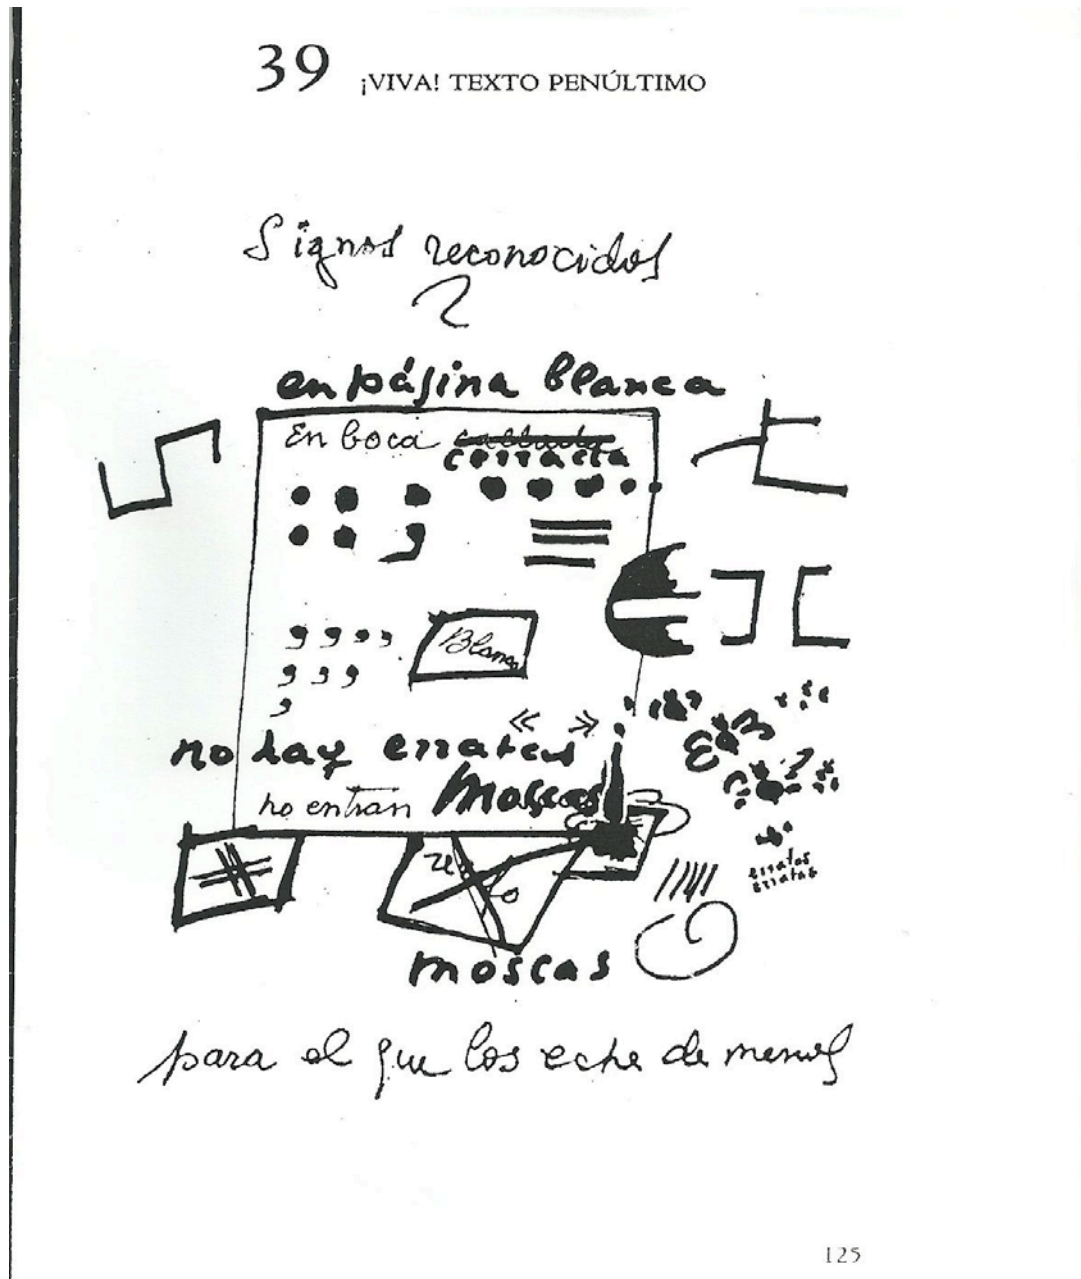 39 ¡VIVA! TEXTO PENÚLTIMO
Signos reconocidos
en página blanca
En boca callada
cerrada
Blanco
« »
no hay erratas
no entran moscas
erratas
erratas
moscas
para el que los eche de menos
125